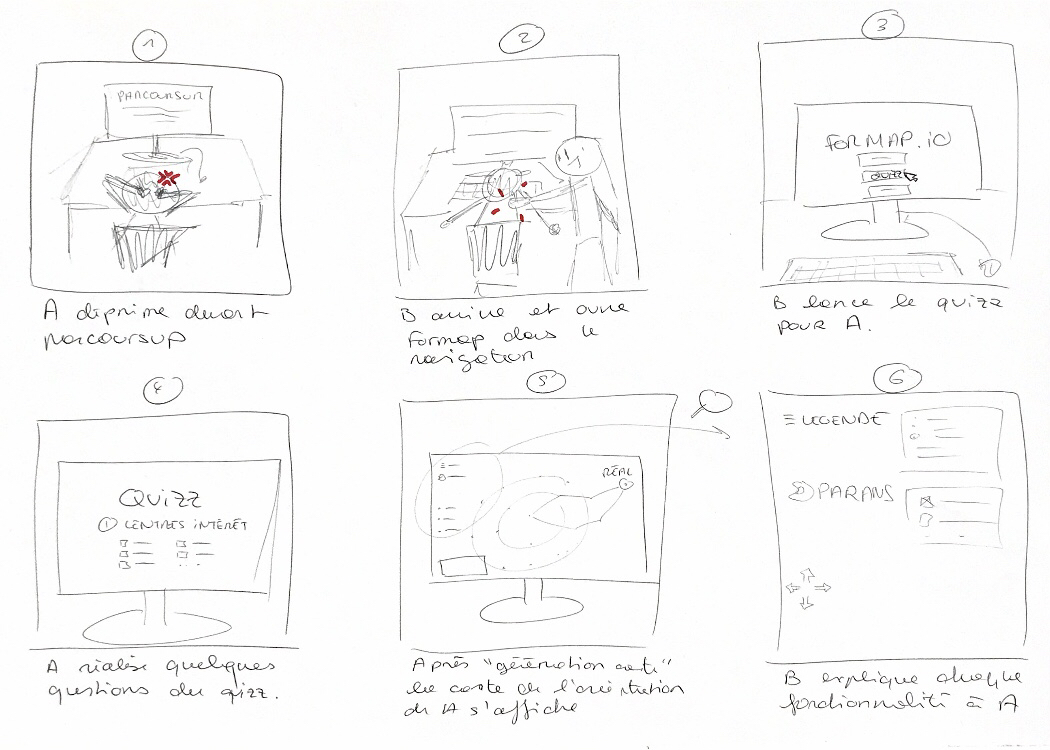 1
PARCOURSUP
A déprime devant
parcoursup
2
B arrive et ouvre
Formap dans le
navigateur
3
FORMAP.IO
QUIZZ
B lance le quizz
pour A.
4
QUIZZ
① CENTRES INTÉRÊT
A réalise quelques
questions du quizz.
5
RÉAL
Après "génération carte"
la carte de l'orientation
de A s'affiche
6
LEGENDE
PARAMS
B explique chaque
fonctionnalité à A